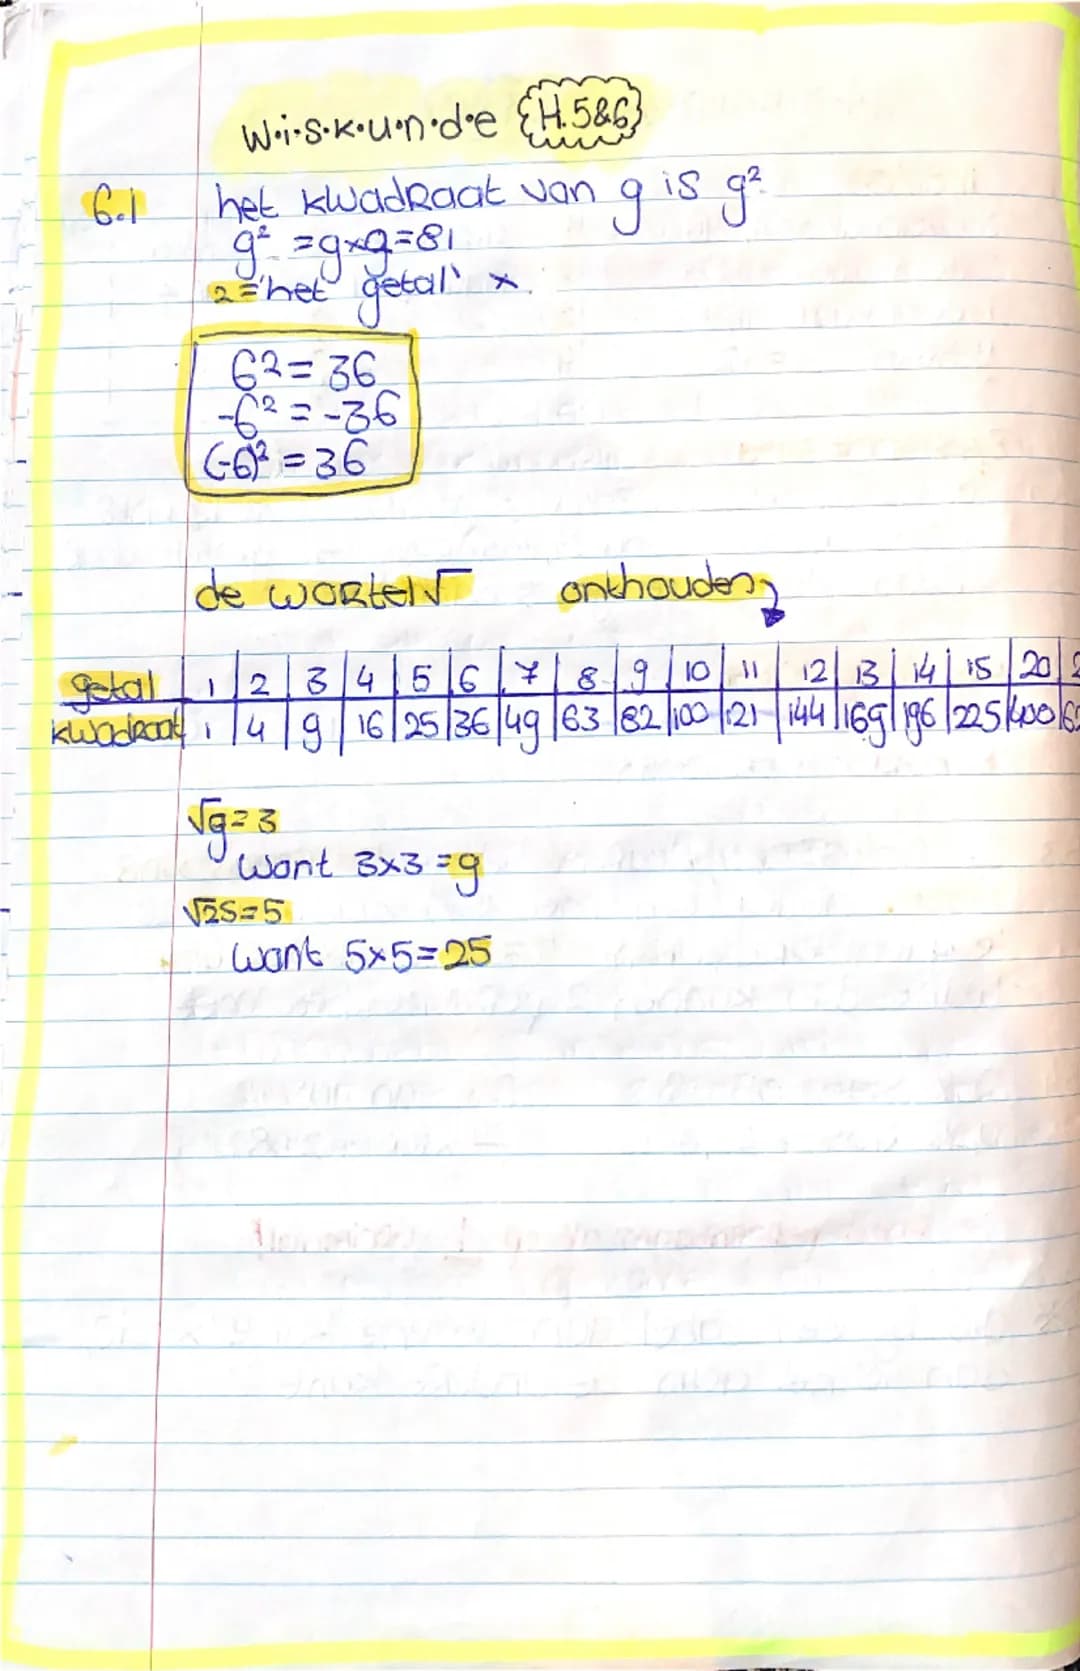 w·i·s·k·u·n·d·e H.5&6
6.1 het kwadraat van 9 is 9²
9² = 9x9=81
2='het getal' x.
6² = 36
-6² = -36
(-6)² = 36
de wortel √ onthouden
getal 1 2 3 4 5 6 7 8 9 10 11 12 13 14 15 20 2
kwadraat 1 4 9 16 25 36 49 63 82 100 121 144 169 196 225 400 62
√9=3
want 3x3=9
√25=5
want 5x5=25